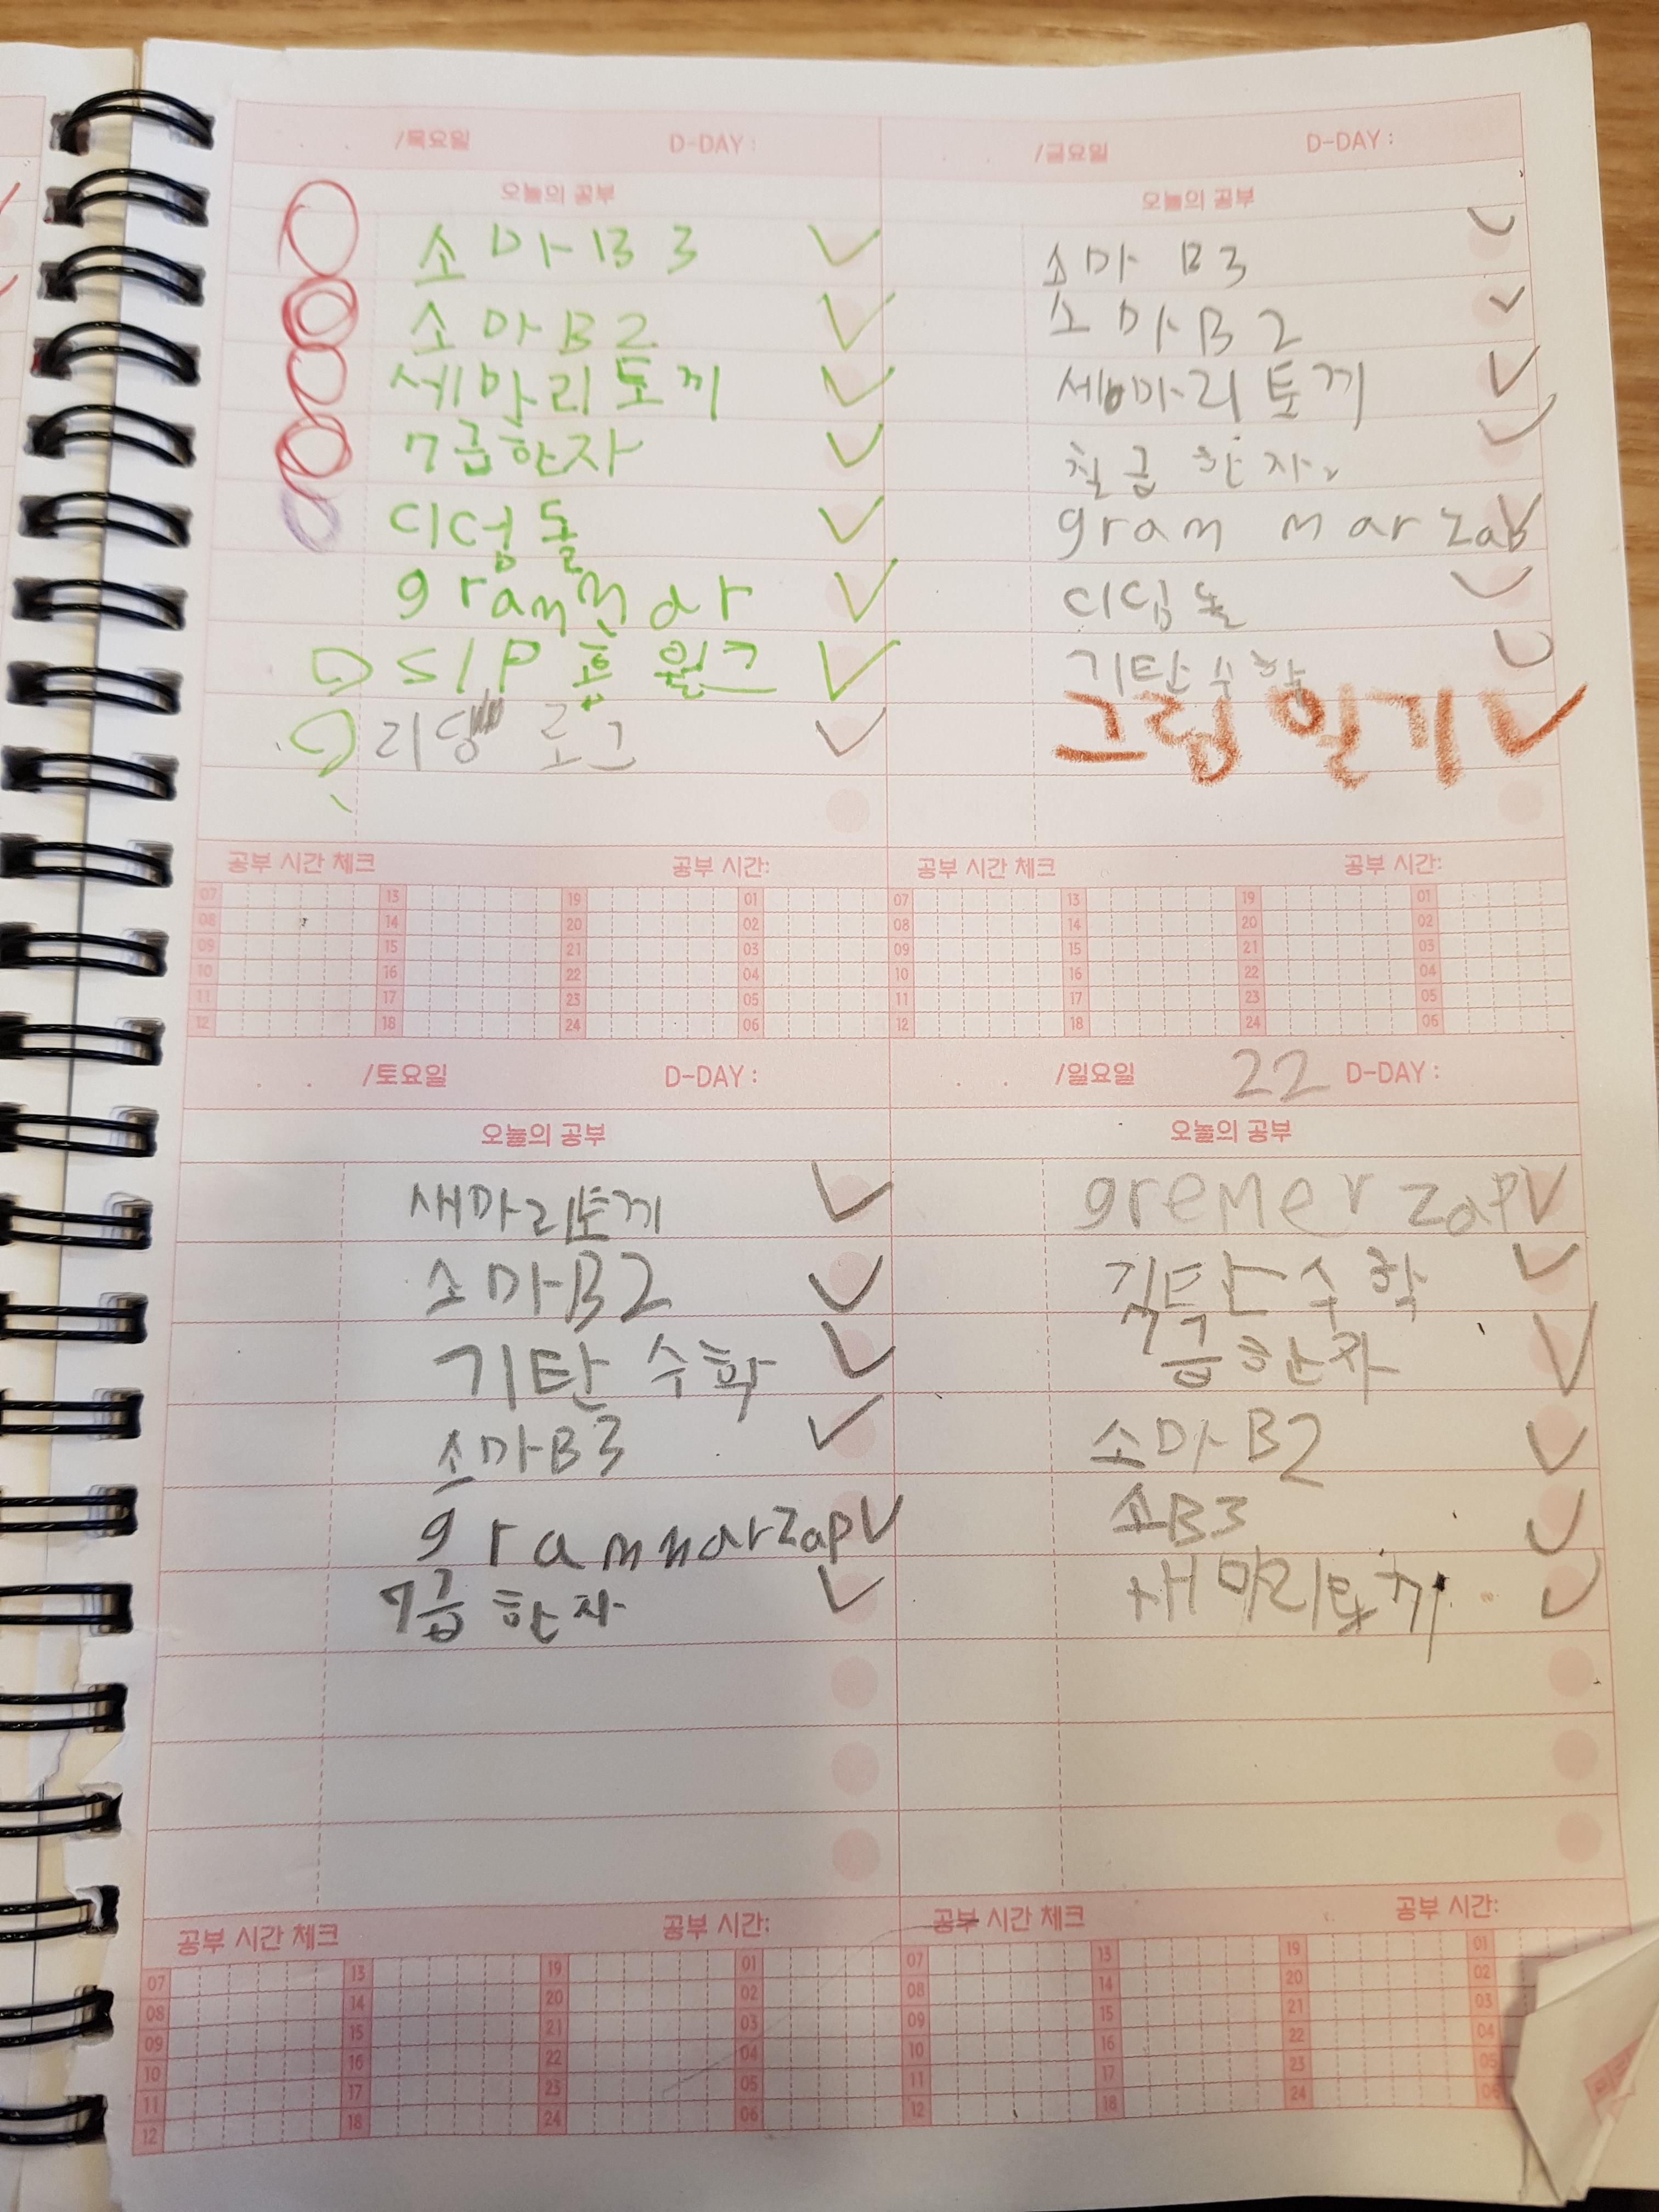 /목요일 D-DAY :
오늘의 공부
소마B3
소마B2
세마리토끼
7급한자
디딤돌
grammar
SIP 홈월크
리딩 로그
/금요일 D-DAY :
오늘의 공부
소마 B3
소마B2
세마리토끼
칠급한자
grammar zap
디딤돌
기탄수학
그림일기
공부 시간 체크 공부 시간:
07 13 19 01
08 14 20 02
09 15 21 03
10 16 22 04
11 17 23 05
12 18 24 06
공부 시간 체크 공부 시간:
07 13 19 01
08 14 20 02
09 15 21 03
10 16 22 04
11 17 23 05
12 18 24 06
. . /토요일 D-DAY :
오늘의 공부
새마리토끼
소마B2
기탄 수학
소마B3
grammarzap
7급 한자
. . /일요일 22 D-DAY :
오늘의 공부
gremer zap
기탄수학
7급한자
소마B2
소B3
새마리토끼
공부 시간 체크 공부 시간:
07 13 19 01
08 14 20 02
09 15 21 03
10 16 22 04
11 17 23 05
12 18 24 06
공부 시간 체크 공부 시간:
07 13 19 01
08 14 20 02
09 15 21 03
10 16 22 04
11 17 23 05
12 18 24 06